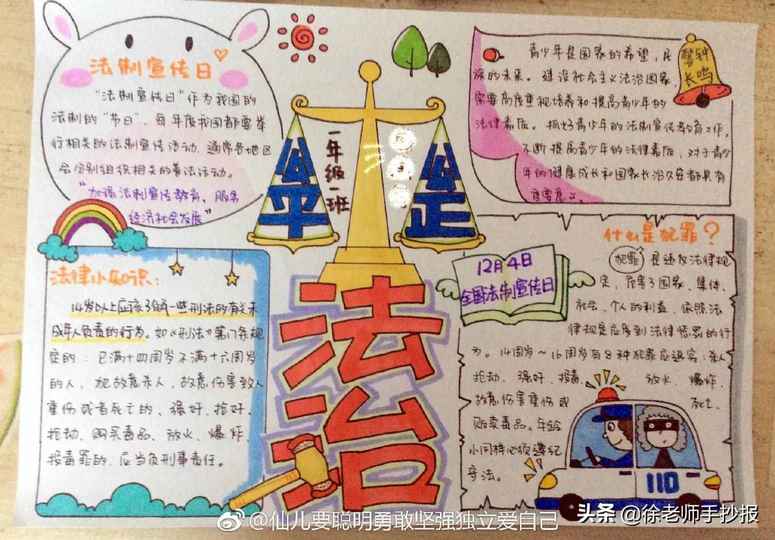 法制宣传日
"法制宣传日"作为我国的
法制的"节日"，每年度我国都要举
行相关的法制宣传活动，通常各地区
会分别组织相关的普法活动。
"加强法制宣传教育，服务
经济社会发展"
公平
公正
一年级一班
青少年是国家的希望，民
族的未来。建设社会主义法治国家，
需要高度重视培养和提高青少年的
法律素质。抓好青少年的法制宣传教育工作，
不断提高青少年的法律素质，对于青少
年的健康成长和国家长治久安都具有
重要意义。
警钟
长鸣
法律小知识：
14岁以上应该了解一些刑法的有关未
成年人负责的行为。如《刑法》第
规
定的：已满十四周岁不满十六周岁
的人，犯故意杀人、故意伤害致人
重伤或者死亡的、强奸、抢
抢劫、购买毒品、放火、爆炸、
投毒罪的，应当负刑事责任。
法治
12月4日
全国法制宣传日
什么是犯罪？
犯罪是违反法律规
定，危害了国家、集体、
社会、个人的利益，依照法
律规定应受到法律惩罚的行
为。14周岁~16周岁有8种犯罪应追究：杀人
抢劫、强奸、投毒、放火、爆炸、
故意伤害重伤或死亡、
贩卖毒品。年龄
小同样必须遵纪
守法。
110
@仙儿要聪明勇敢坚强独立爱自己
头条 @徐老师手抄报